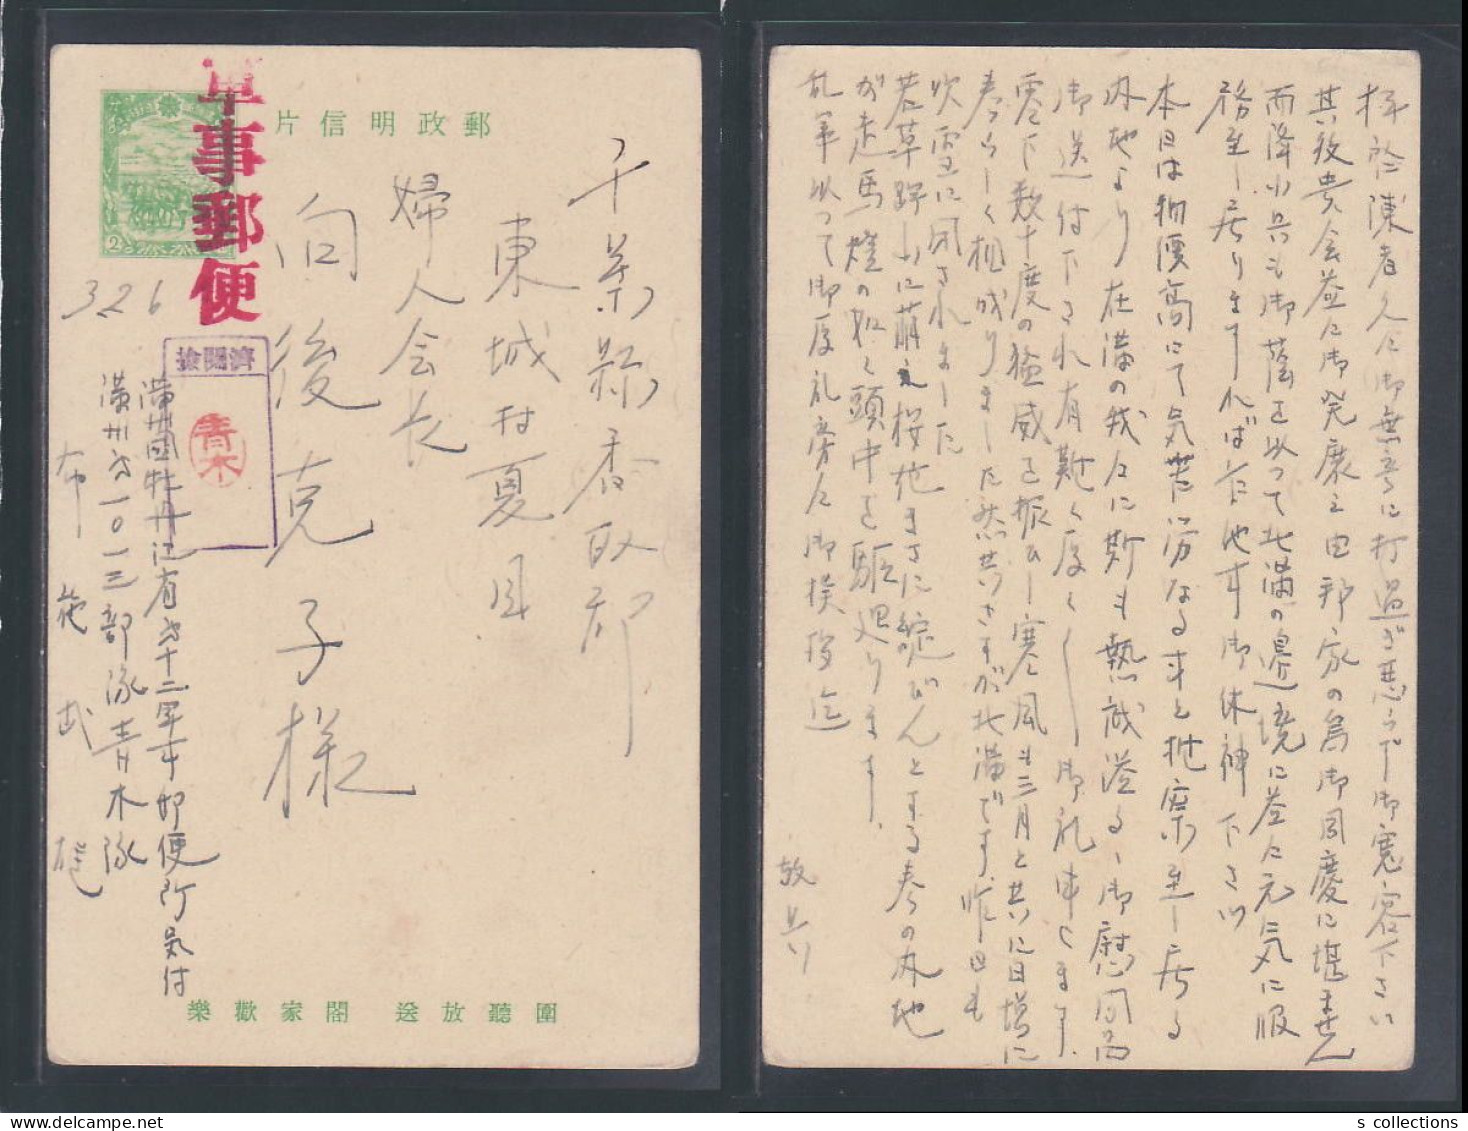 郵政明信片
軍事郵便
千葉縣香取郡
東城村夏目
婦人会長
向後克子様
3.26
檢閲濟
青木
満州國牡丹江省第十二軍事郵便所気付
満州第一〇一三部隊青木隊
布施武雄
圍聽放送 閤家歡樂
拝啓陳者久々御無音に打過ぎ悪しからず御寛容下さい
其後貴会益々御発展之由邦家の為御同慶に堪ません
而降小兵も御蔭を以って北満の邊境に益々元気に服
務至し居りますれば乍他事御休神下さい
本日は物價高にて気苦労なる事と推察至し居る
内地より在満の我々に斯も熱誠溢るゝ御慰問品
御送付下され有難く厚く〱御礼申します。
零下数十度の猛威を振ひし寒風も三月と共に日増に
春らしく相成りました然共さすが北満です。昨日も
吹雪に閉されました
若草野山に萌え桜花まさに綻びんとする春の内地
が走馬燈の如く頭中を駈廻ります。
乱筆以って御厚礼旁々御挨拶迄
敬具
s collections